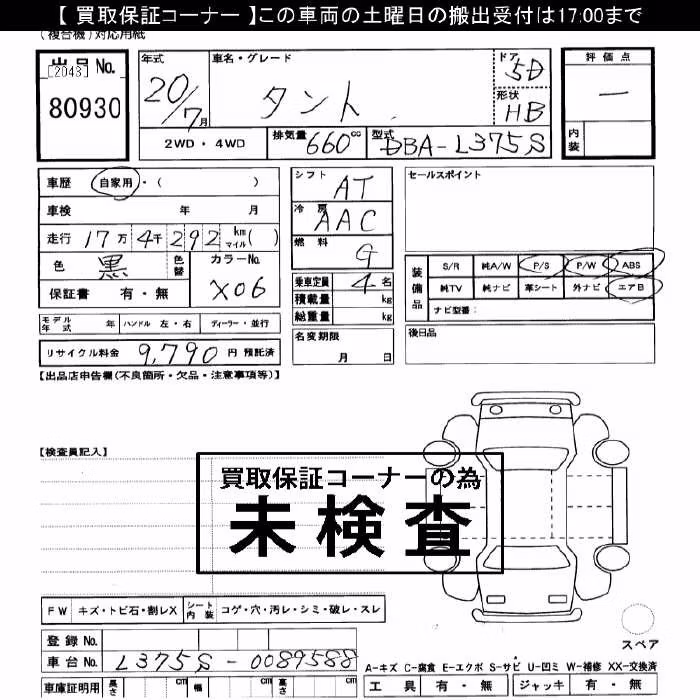 【 買取保証コーナー 】この車両の土曜日の搬出受付は17:00まで
(複合機)対応用紙
出品No.
[2043]
80930
年式
20/7月
車名・グレード
タント
ドア
5D
形状
HB
評価点
ー
内装
2WD・4WD
排気量 660cc
型式 DBA-L375S
車歴 自家用・( )
車検 年 月
走行 17万 4千 292 km マイル( )
色 黒 色替
カラーNo.
X06
保証書 有・無
シフト
AT
冷房
AAC
燃料
G
乗車定員 4名
積載量 kg
総重量 kg
セールスポイント
装備品
S/R 純A/W P/S P/W ABS
純TV 純ナビ 革シート 外ナビ エアB
ナビ型番:
モデル年式 年 ハンドル 左・右 ディーラー・並行
名変期限
月 日
後日品
リサイクル料金 9,790 円 預託済
【出品店申告欄(不良箇所・欠品・注意事項等)】
【検査員記入】
買取保証コーナーの為
未検査
FW キズ・トビ石・割レX シート内装 コゲ・穴・汚レ・シミ・破レ・スレ
スペア
登録No.
車台No. L375S-0089588
A-キズ C-腐食 E-エクボ S-サビ U-凹ミ W-補修 XX-交換済
車庫証明用 長さ cm 幅 cm 高さ cm
工具 有・無 ジャッキ 有・無